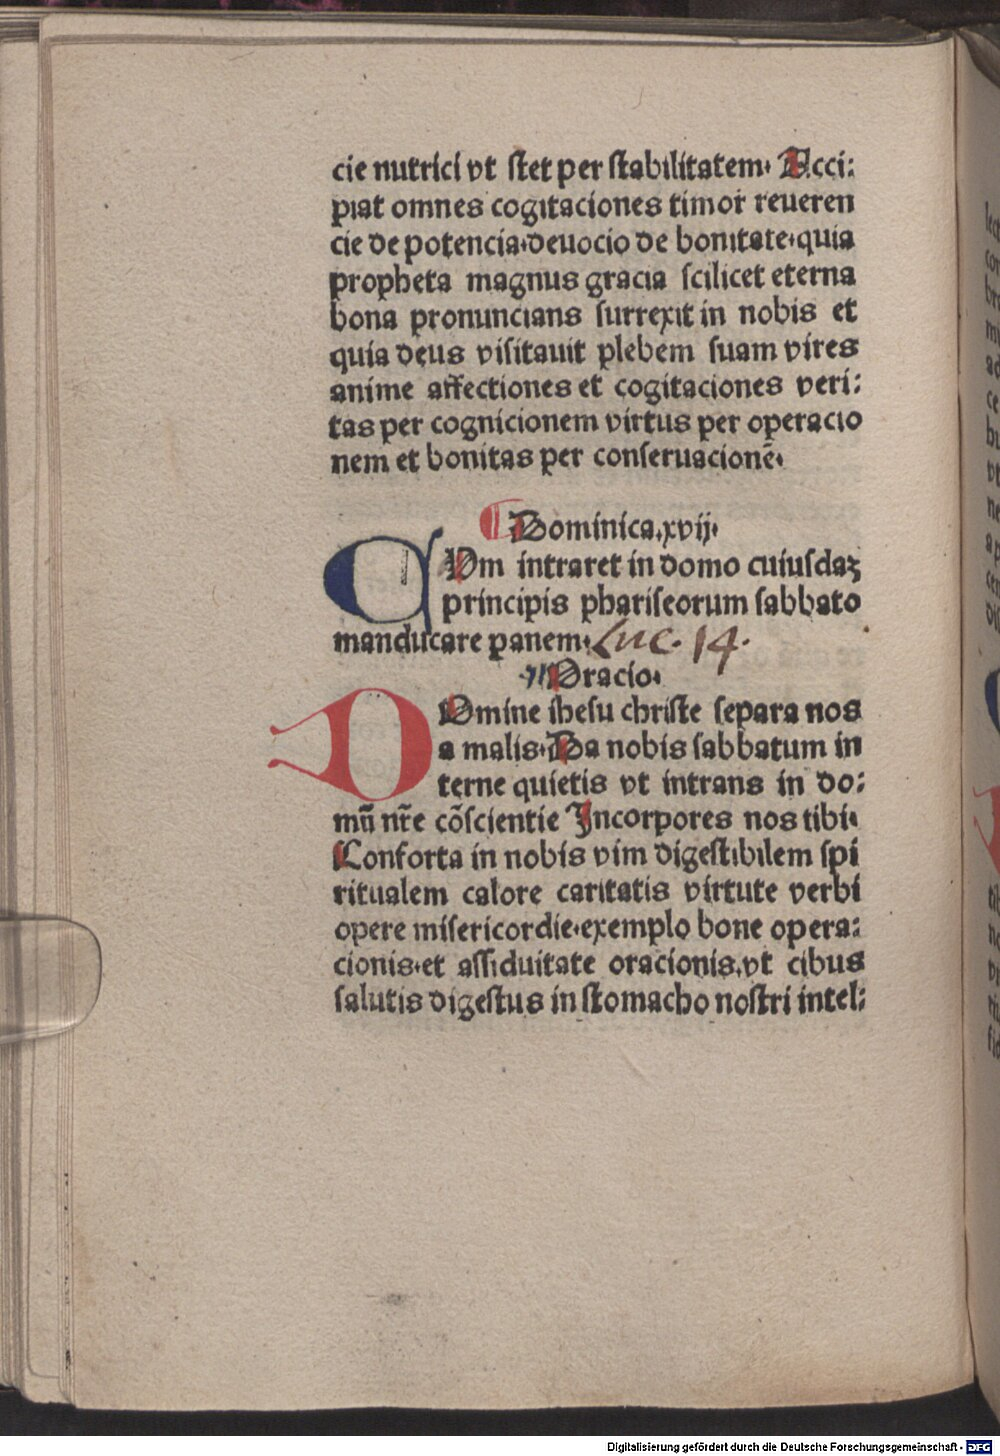 cie nutrici vt stet per stabilitatem· Acci:
piat omnes cogitaciones timor reueren
cie de potencia·deuocio de bonitate·quia
propheta magnus gracia scilicet eterna
bona pronuncians surrexit in nobis et
quia deus visitauit plebem suam vires
anime affectiones et cogitaciones veri:
tas per cognicionem virtus per operacio
nem et bonitas per conseruacionē·
Dominica.xvij·
CVm intraret in domo cuiusdaꝫ
principis phariseorum sabbato
manducare panem· Luc. 14.
Oracio·
DOmine ihesu christe separa nos
a malis·Da nobis sabbatum in
terne quietis vt intrans in do:
mū nr̄e cōscientie Incorpores nos tibi·
Conforta in nobis vim digestibilem spi
ritualem calore caritatis virtute verbi
opere misericordie·exemplo bone opera:
cionis·et assiduitate oracionis.vt cibus
salutis digestus in stomacho nostri intel:
Digitalisierung gefördert durch die Deutsche Forschungsgemeinschaft - DFG